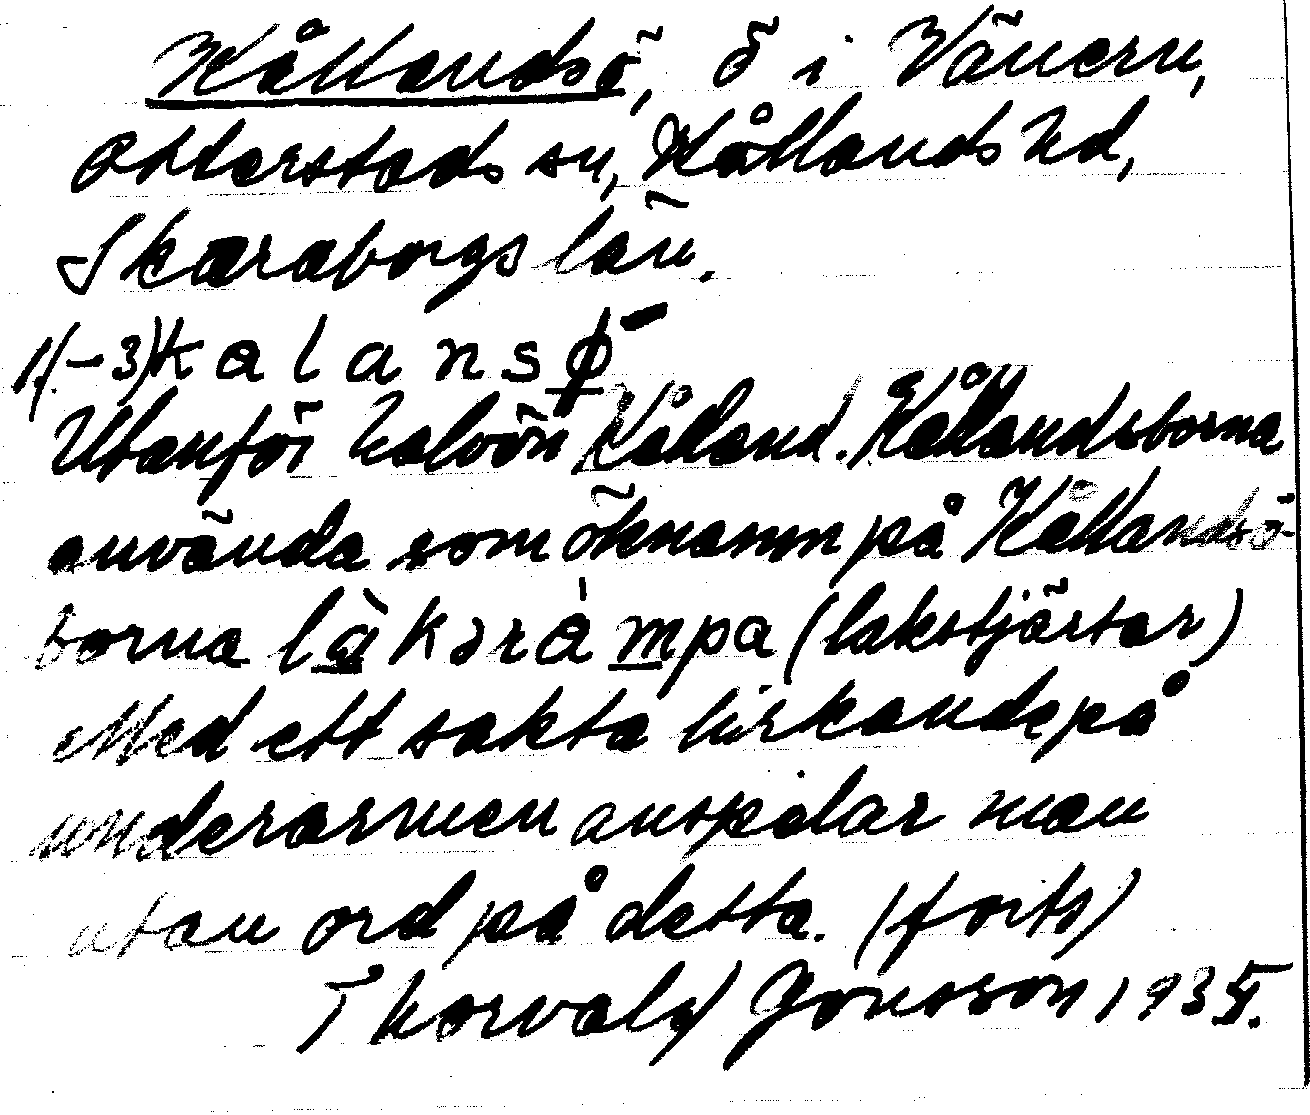 Kållandsö, ö i Vänern,
Otterstads sn, Kållands hd,
Skaraborgs län.
1(-3) kalansø
Utanför halvön Kålland. Kållandsborna
använda som öknamn på Kållandsö-
borna làkəràmpa (lakstjärtar)
Med ett sakta lirkande på
underarmen anspelar man
utan ord på detta. (forts)
Thorvald Jonsson